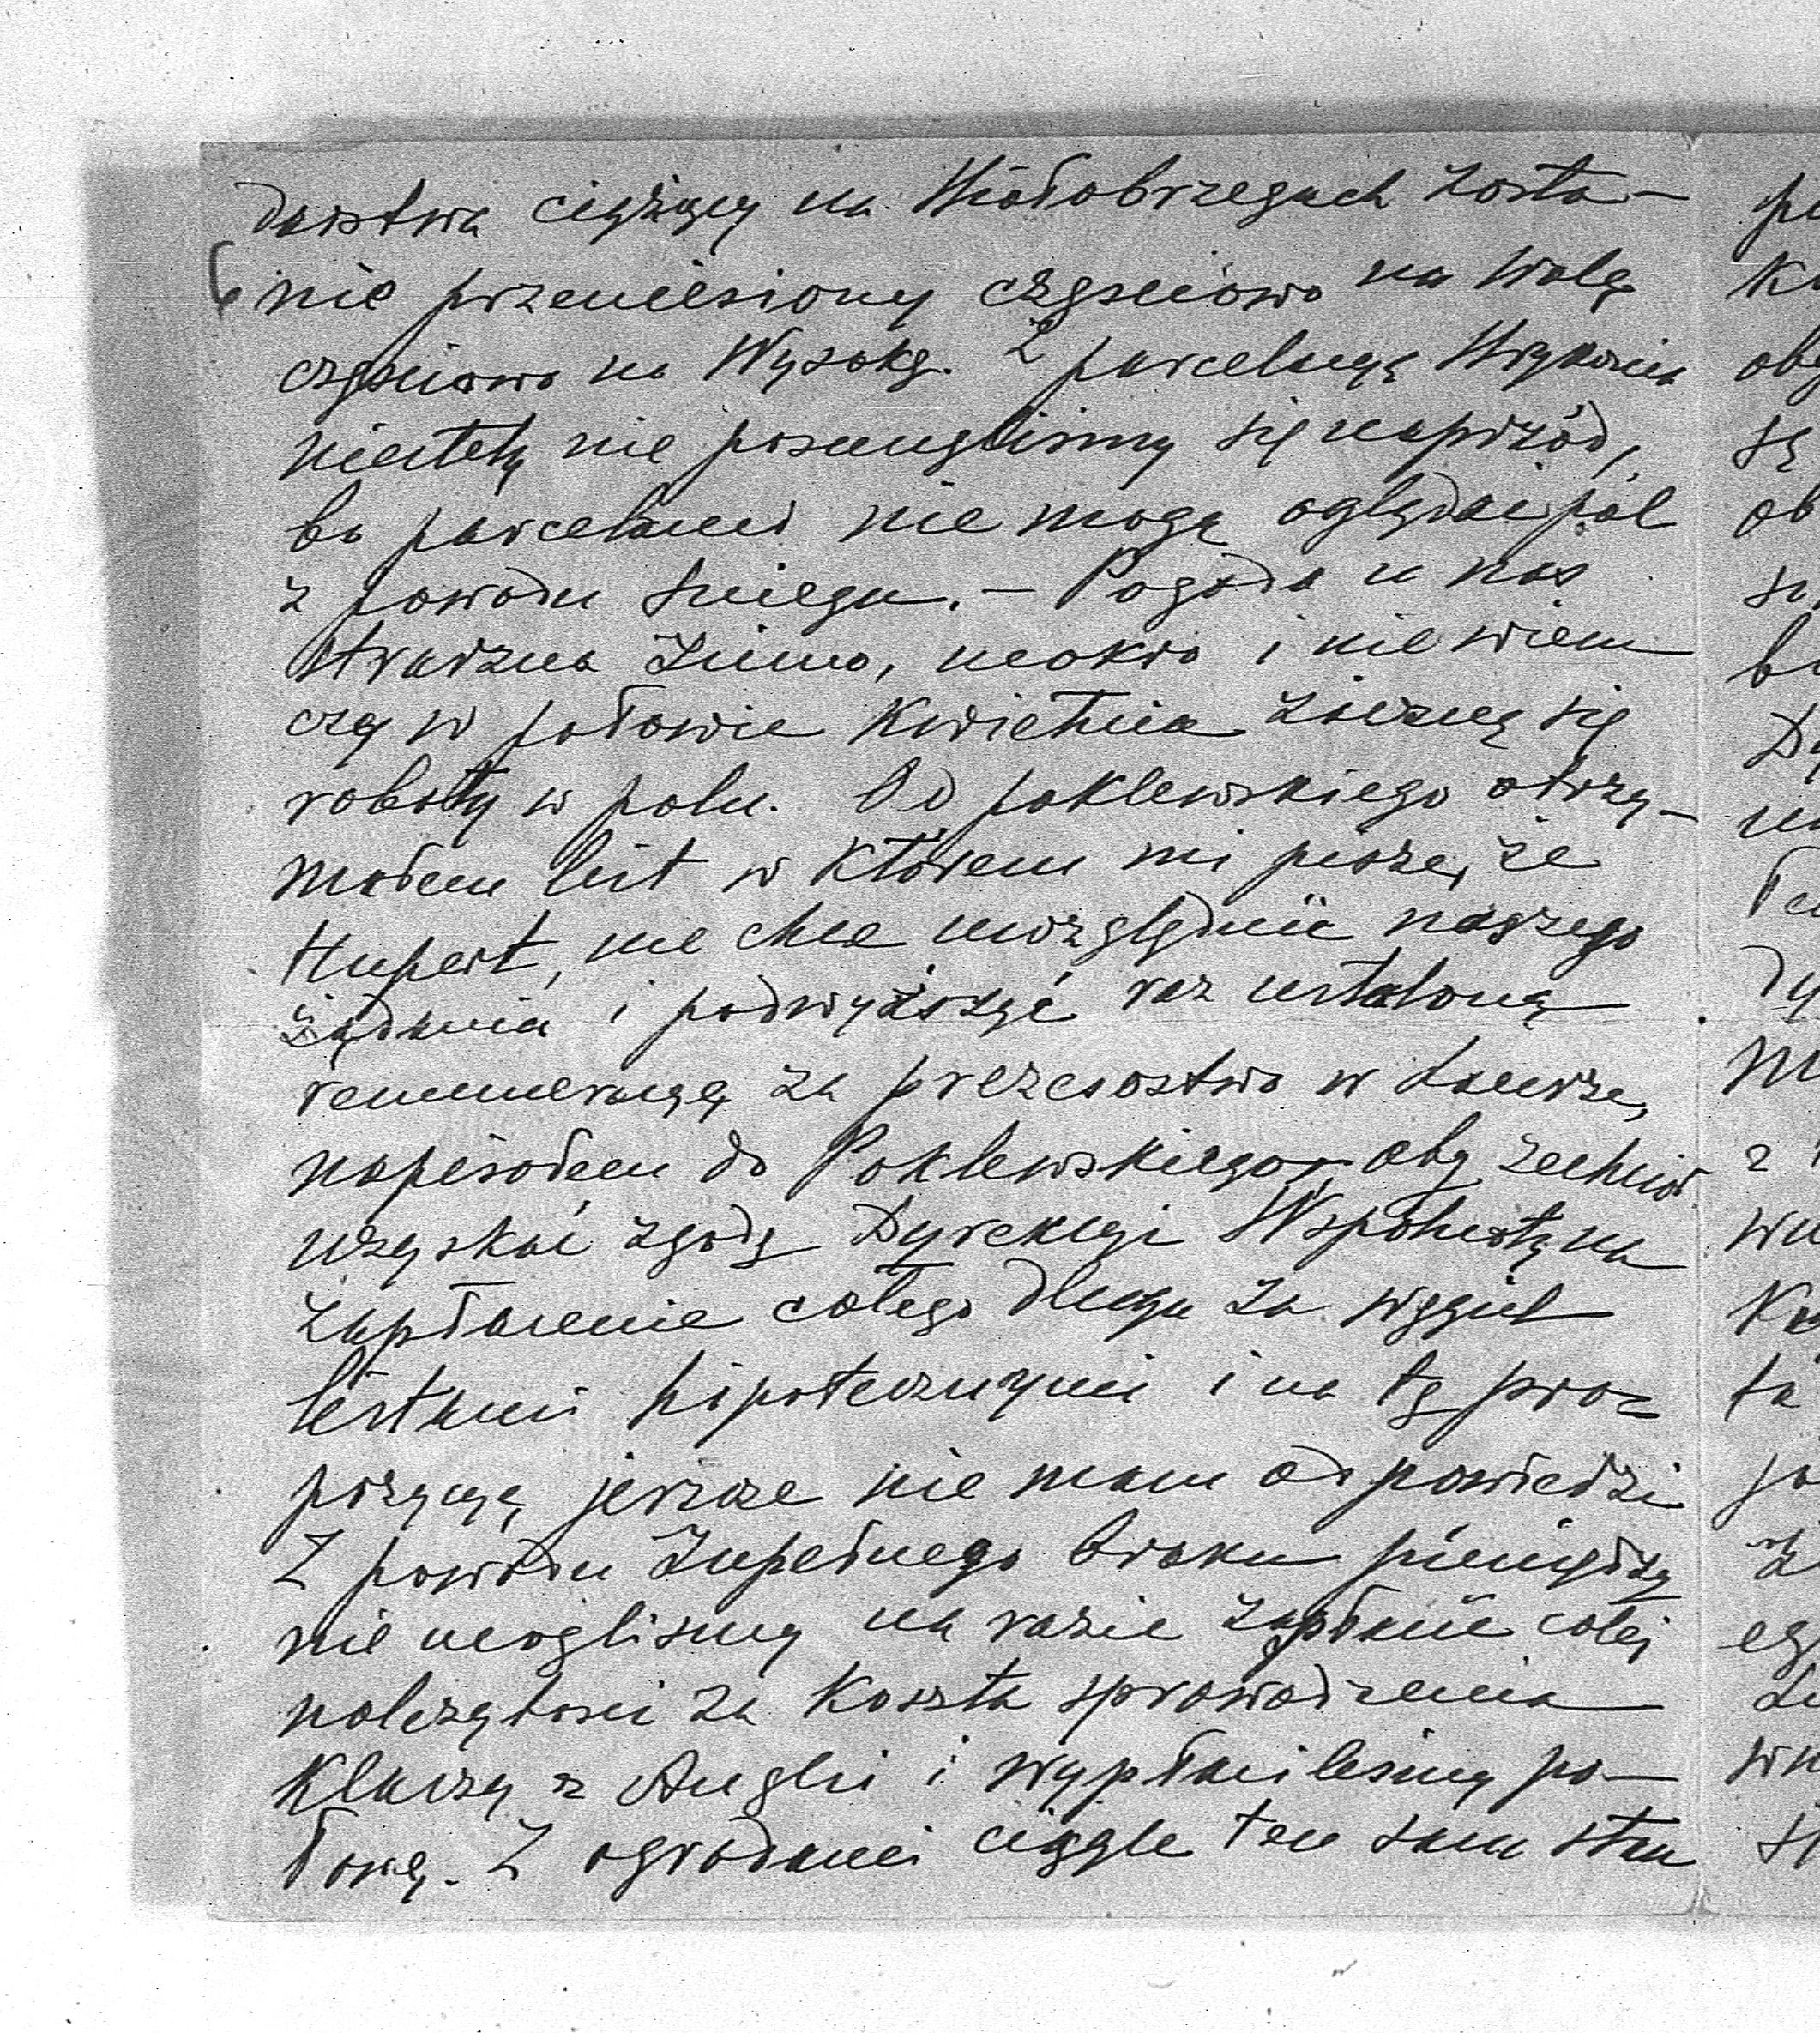 darstwa ciążący na Białobrzegach zosta-
nie przeniesiony częściowo na Wolę
częściowo na Wysoką. Z parcelacyą
niestety nie posunęliśmy się naprzód,
bo parcelanci nie mogą oglądać pól
z powodu śniegu. – Pogoda u nas
straszna zimno, mokro i nie wiem
czy w połowie Kwietnia zaczną się
roboty w polu. Od poklewskiego otrzy-
małem list w którem mi pisze, że
Hupert, nie chce uwzględnić naszego
żądania i podwyższyć raz ustaloną
remuneracyę za prezesostwo w
napisałem do Poklewskiego, aby zechciał
uzyskać zgodę Dyrekcyi Wspólnoty na
zapłacenie całego długu za węgiel
listami hipotecznymi i na tę pro-
pozycyę jeszcze nie mam odpowiedzi
Z powodu zupełnego braku pieniędzy
nie mogliśmy na razie zapłacić całej
należytości za Koszta sprowadzenia
Klaczy z Anglii i wypłaciliśmy po-
łowę. Z ogrodami ciągle ten sam stan